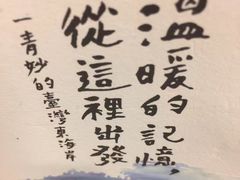 溫暖的記憶,
從這裡出發
一青妙的臺灣東海岸